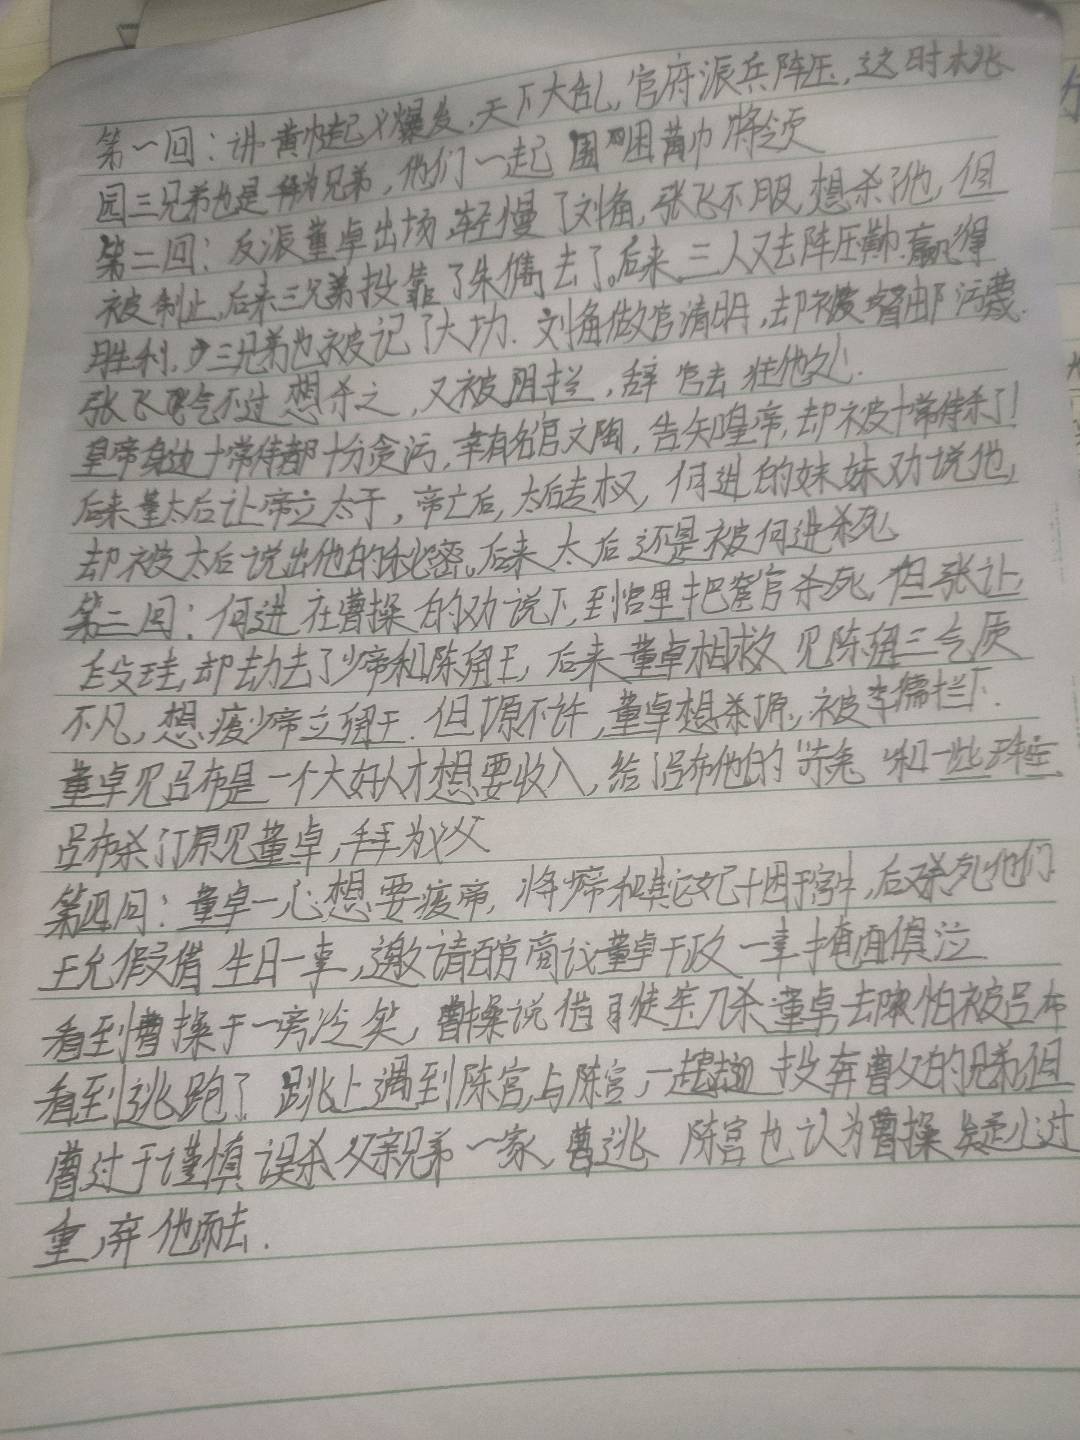 第一回：讲黄巾起义爆发，天下大乱，官府派兵阵压，这时桃
园三兄弟也是拜为兄弟，他们一起围困黄巾将领
第二回：反派董卓出场，轻慢了刘备，张飞不服，想杀了他，但
被制止，后来三兄弟投靠了朱儁去了。后来三人又去阵压，赢得
胜利，三兄弟也被记了大功．刘备做官清明，却被督邮污蔑．
张飞气不过想杀之，又被阻拦，辞官去往他处．
皇帝身边十常侍都十分贪污，幸有名官文陶，告知皇帝，却被十常侍杀了！
后来董太后让帝立太子，帝亡后，太后专权，何进的妹妹劝说他，
却被太后说出他的秘密。后来太后还是被何进杀死
第三回：何进在曹操的劝说下，到宫里把宦官杀死，但张让，
段珪，却劫去了少帝和陈留王，后来董卓相救 见陈留王气质
不凡，想废少帝立留王．但丁原不许，董卓想杀原，被李儒拦下．
董卓见吕布是一个大好人才想要收入，给吕布他的赤兔和一些
吕布杀丁原见董卓，拜为义父
第四回：董卓一心想要废帝，将少帝和其它妃囚于宫中，后杀死他们
王允假借生日一事，邀请百官商议董卓干政一事掩面俱泣
看到曹操于一旁冷笑，曹操说借司徒宝刀杀董卓去 怕被吕布
看到逃跑了 跳上遇到陈宫，与陈宫，一起 投奔曹父的兄弟，但
曹过于谨慎误杀父亲兄弟一家，曹逃 陈宫也认为曹操疑心过
重，弃他而去．